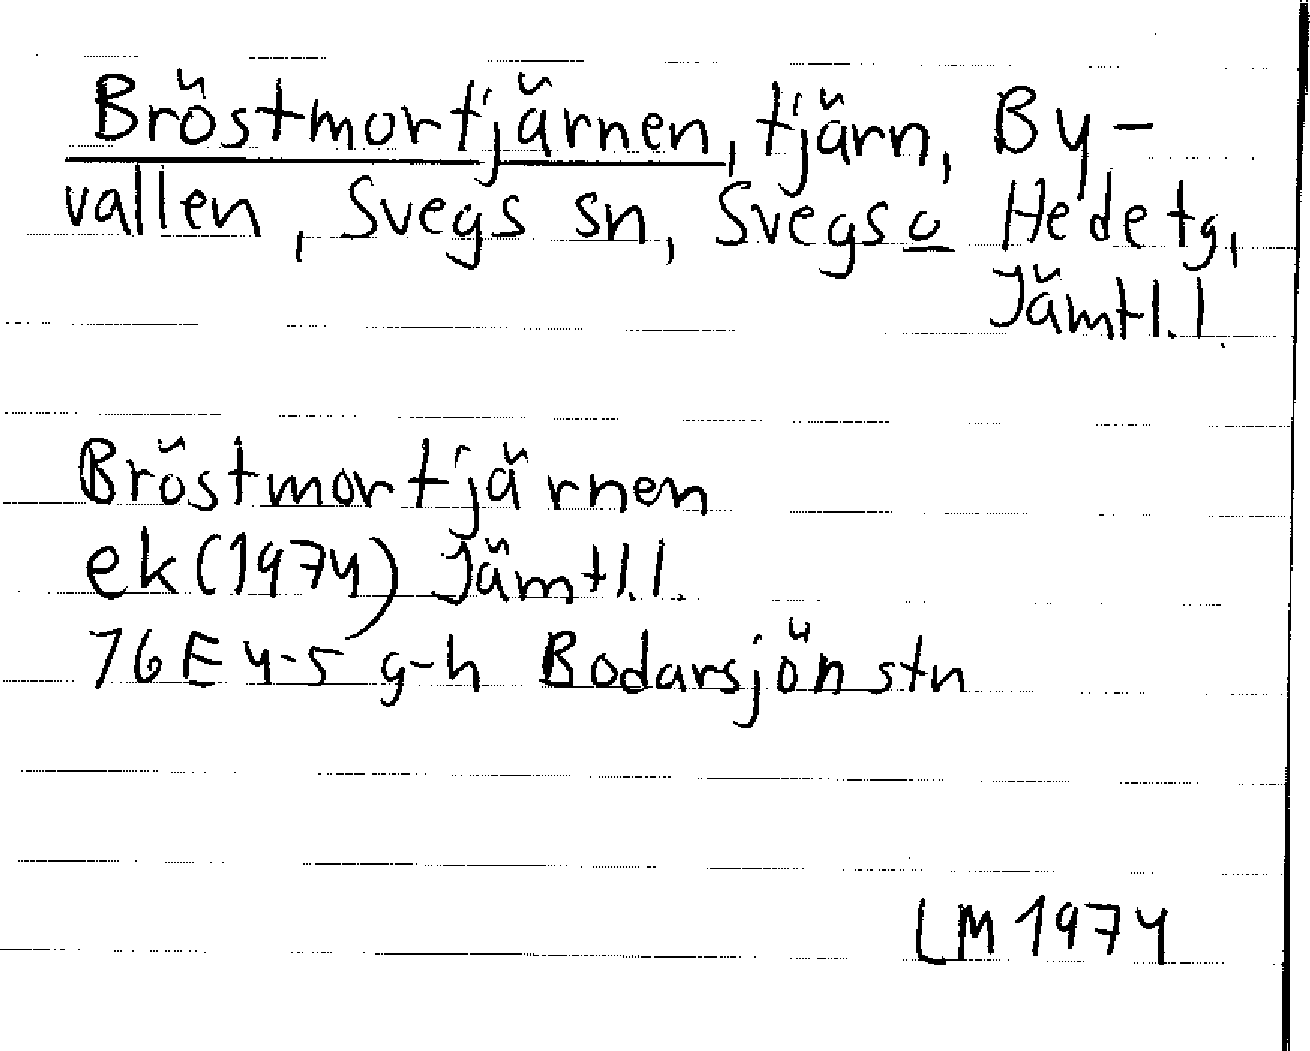 Bröstmortjärnen, tjärn, By-
vallen, Svegs sn, Svegs o Hede tg,
Jämtl. l.
Bröstmortjärnen
ek (1974) Jämtl. l.
76E 4-5 g-h Bodarsjön stn
LM 1974